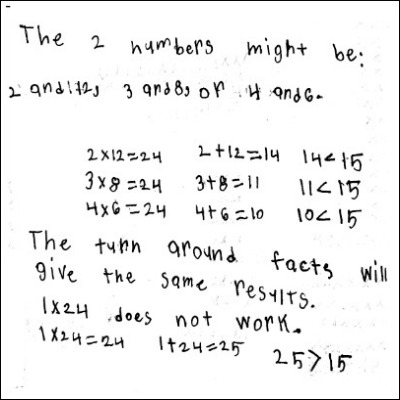 The 2 numbers might be:
2 and 12, 3 and 8, or 4 and 6.
2x12=24 2+12=14 14<15
3x8=24 3+8=11 11<15
4x6=24 4+6=10 10<15
The turn around facts will
give the same results.
1x24 does not work.
1x24=24 1+24=25 25>15